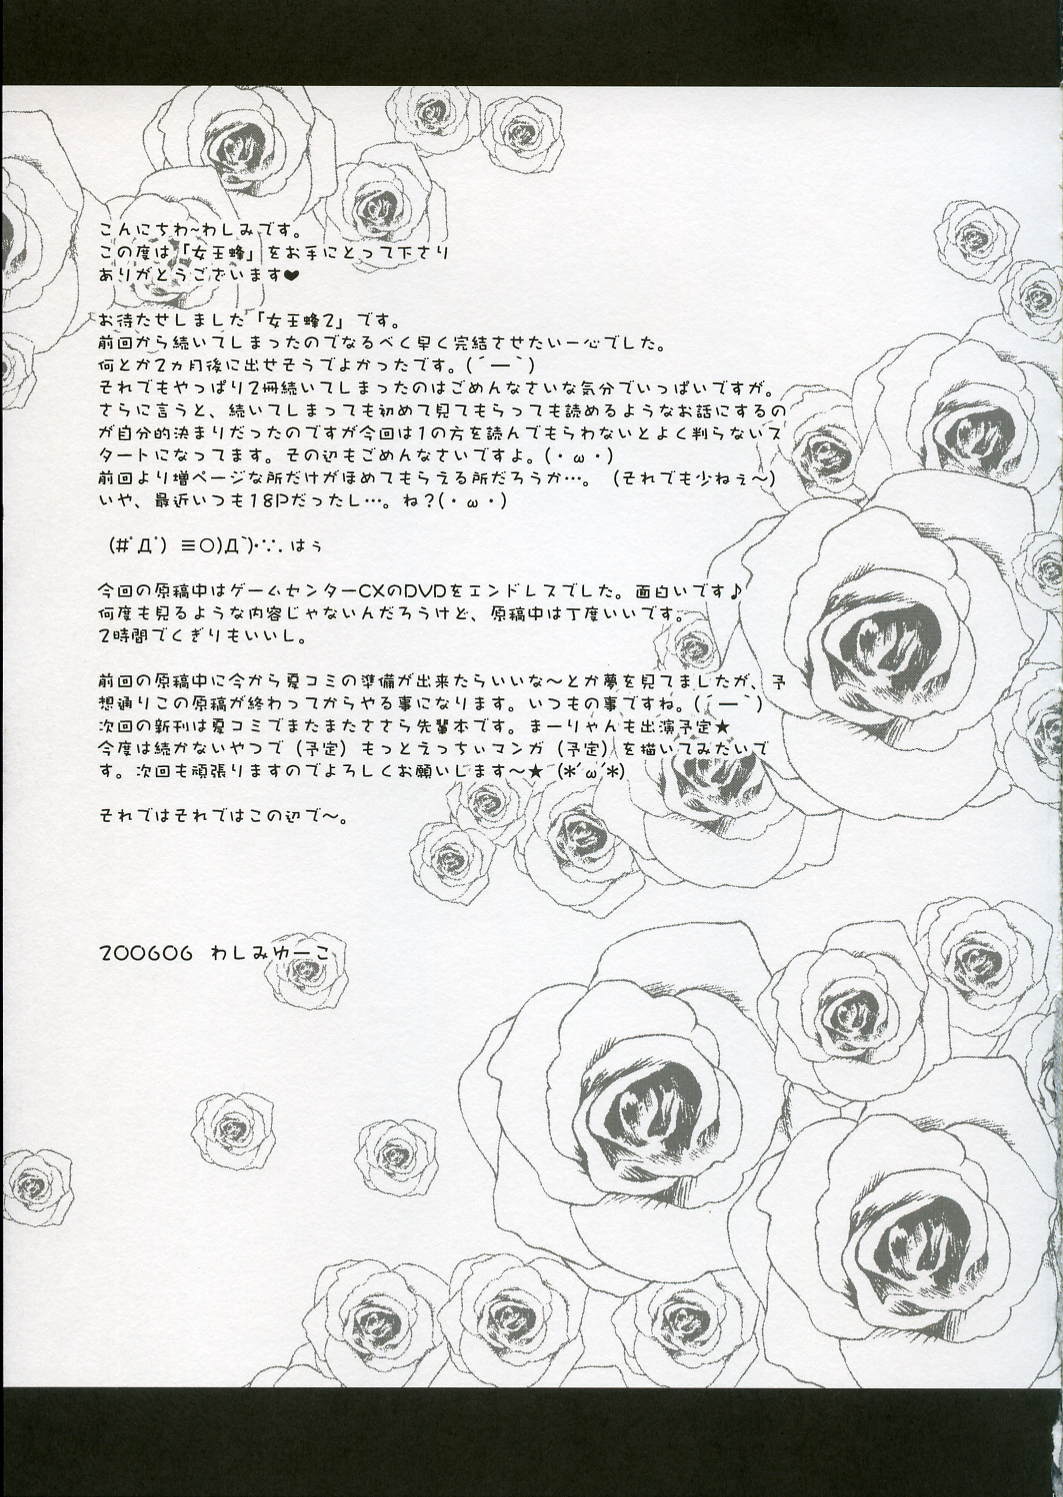 こんにちわ~わしみです。
この度は「女王蜂」をお手にとって下さり
ありがとうございます♥
お待たせしました「女王蜂2」です。
前回から続いてしまったのでなるべく早く完結させたい一心でした。
何とか2ヵ月後に出せそうでよかったです。(´ー`)
それでもやっぱり2冊続いてしまったのはごめんなさいな気分でいっぱいですが。
さらに言うと、続いてしまっても初めて見てもらっても読めるようなお話にするの
が自分的決まりだったのですが今回は1の方を読んでもらわないとよく判らないス
タートになってます。その辺もごめんなさいですよ。(・ω・)
前回より増ページな所だけがほめてもらえる所だろうか…。（それでも少ねぇ～）
いや、最近いつも18Pだったし…。ね?(・ω・)
(#ﾟДﾟ) ≡○)Д`)･∵. はぅ
今回の原稿中はゲームセンターCXのDVDをエンドレスでした。面白いです♪
何度も見るような内容じゃないんだろうけど、原稿中は丁度いいです。
2時間でくぎりもいいし。
前回の原稿中に今から夏コミの準備が出来たらいいな～とか夢を見てましたが、予
想通りこの原稿が終わってからやる事になります。いつもの事ですね。(´ー`)
次回の新刊は夏コミでまたまたささら先輩本です。まーりゃんも出演予定★
今度は続かないやつで（予定）もっとえっちぃマンガ（予定）を描いてみたいで
す。次回も頑張りますのでよろしくお願いします～★(*´ω`*)
それではそれではこの辺で～。
200606 わしみゆーこ